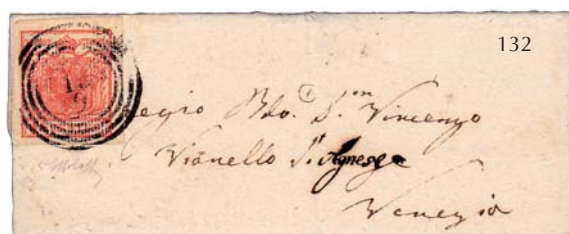 132
egio Rdo. D.n Vincenzo
Vianello S. Agnese
Venezia